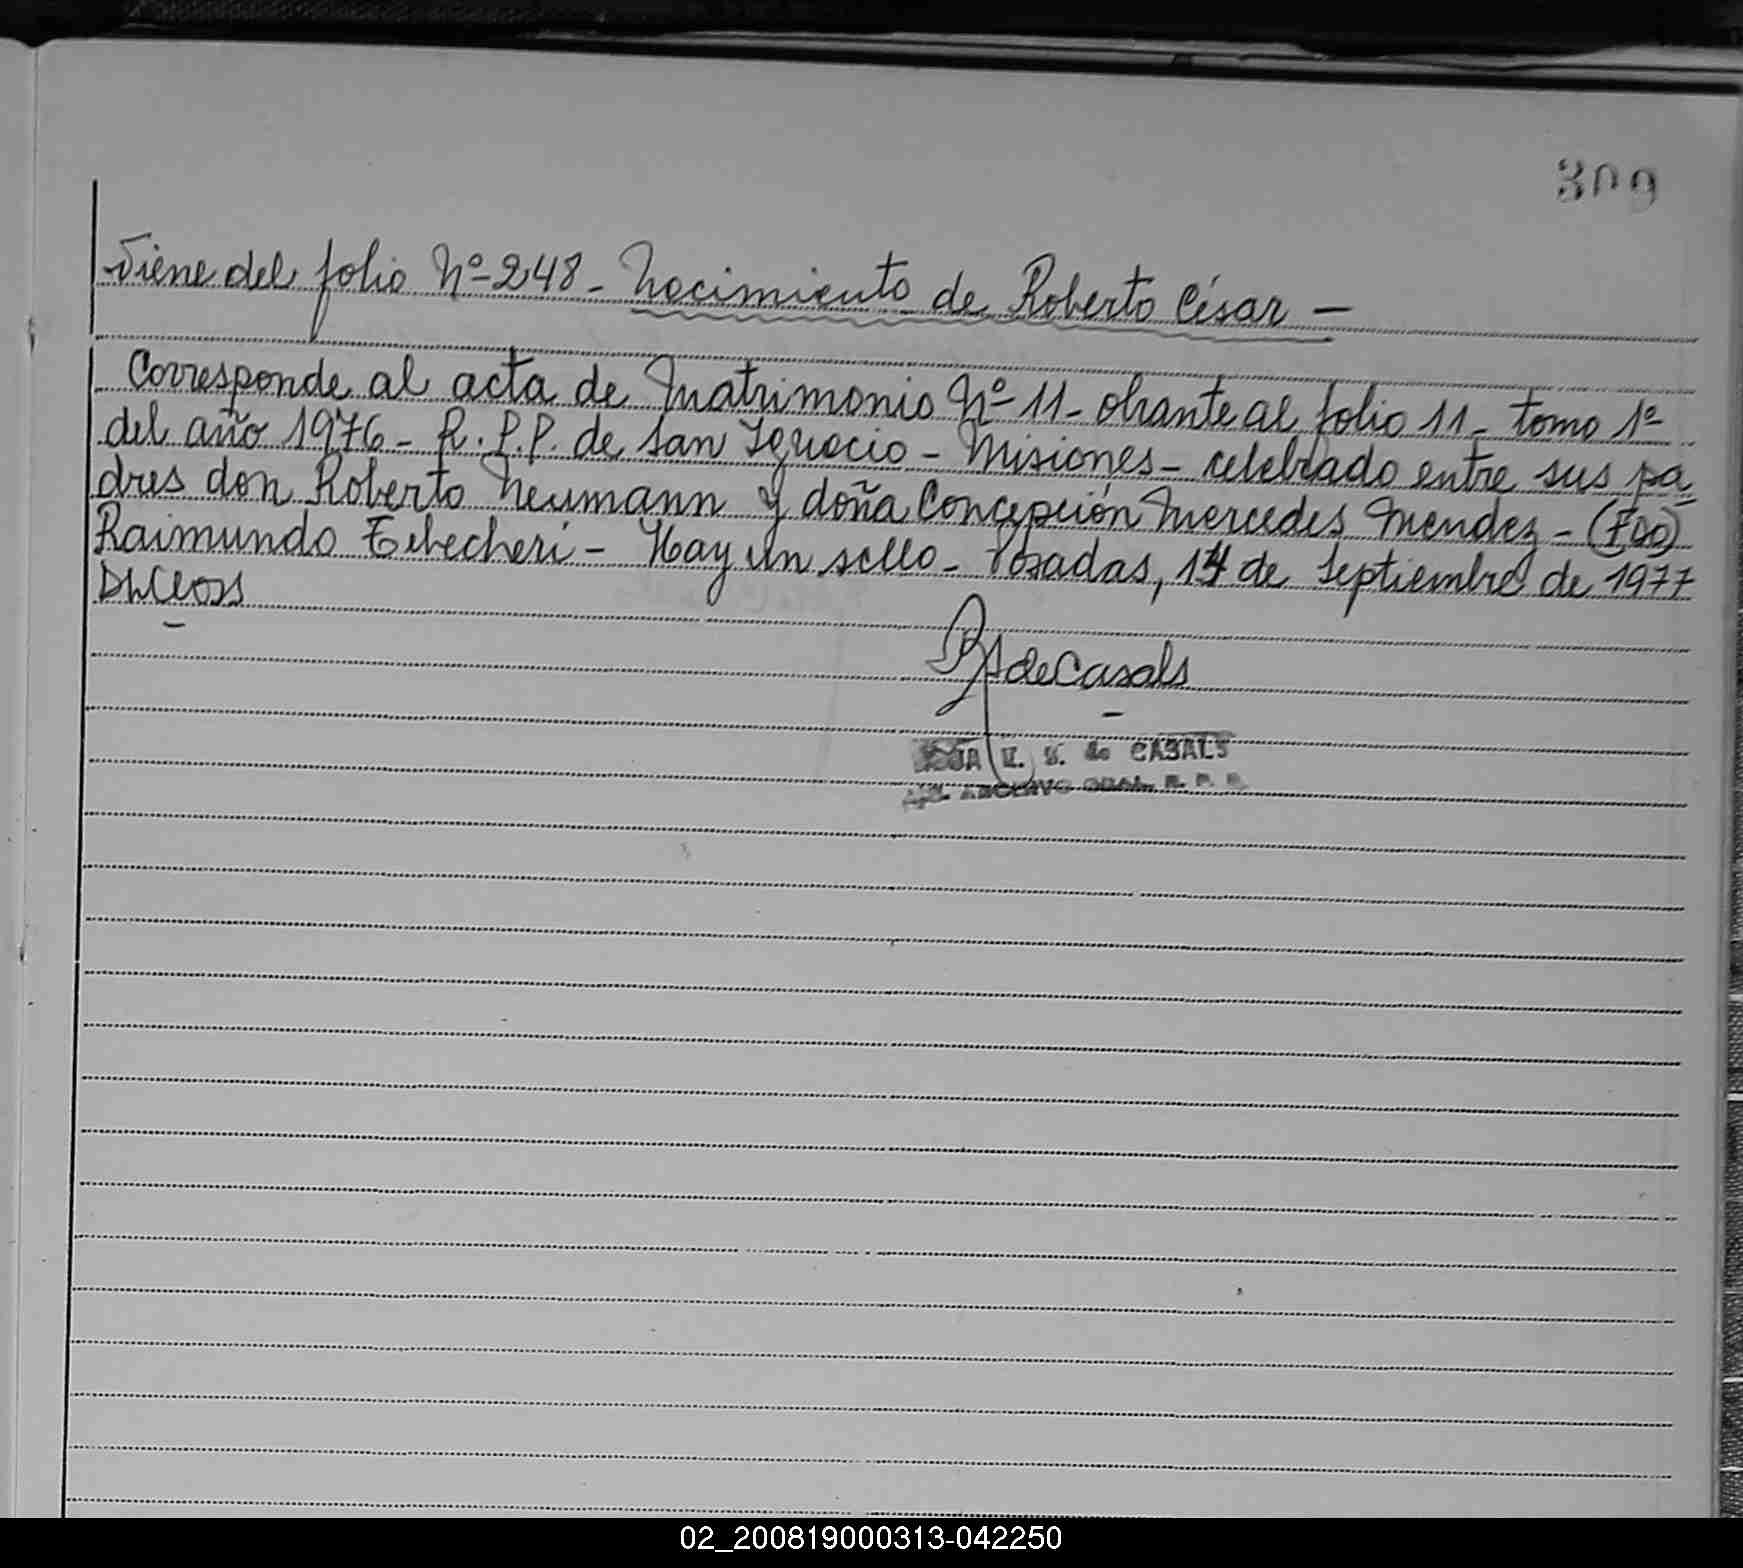 309
Viene del folio Nº 248 - Nacimiento de Roberto César -
Corresponde al acta de Matrimonio Nº 11 - obrante al folio 11 - tomo 1º
del año 1976 - R.P.P. de San Ignacio - Misiones - celebrado entre sus pa-
dres don Roberto Neumann y doña Concepción Mercedes Mendez - (FDO)
Raimundo - Hay un sello - Posadas, 14 de Septiembre de 1977
de Casals
de CASALS
ARCHIVO GRAL. R. P. P.
02_200819000313-042250